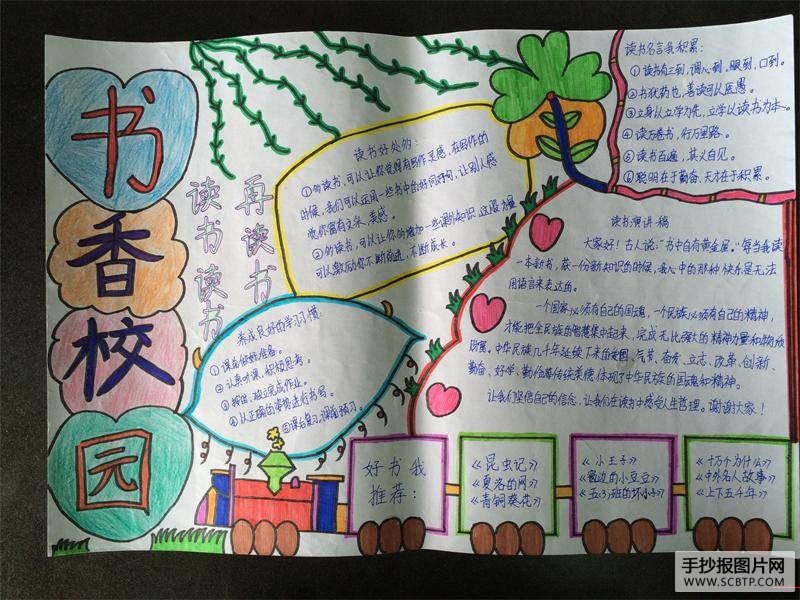 书
香
校
园
读书读书
再读书
读书好处多:
①多读书,可以让你觉得有写作灵感,在写作的
时候,我们可以运用一些书中的好词好句,让别人感
觉你富有文采,美感。
②多读书,可以让你多增加一些课外知识
可以激励你不断前进,不断成长。
养成良好的学习习惯:
①课前做好准备。
②认真听课,积极思考。
③按时、独立完成作业。
④以正确的姿势进行书写。
⑤课后复习,课前预习。
读书名言我积累:
①读书有三到,谓心到,眼到,口到。
②书犹药也,善读可以医愚。
③立身以立学为先,立学以读书为本。
④读万卷书,行万里路。
⑤读书百遍,其义自见。
⑥聪明在于勤奋,天才在于积累。
读书演讲稿
大家好!古人说:“书中自有黄金屋。”每当我读
一本新书,获一份新知识的时候,我心中的那种快乐是无法
用语言来表达的。
一个国家必须有自己的国魂,一个民族必须有自己的精神,
才能把全民族的智慧集中起来,完成无比强大的精神力量和物质
财富。中华民族几千年延续下来的爱国、气节、奋发、立志、改革、创新、
勤奋、好学、勤俭等传统美德,体现了中华民族的国魂和精神。
让我们坚信自己的信念,让我们在读书中感受人生哲理。谢谢大家!
好书我
推荐:
《昆虫记》
《夏洛的网》
《青铜葵花》
《小王子》
《窗边的小豆豆》
《五·三班的坏小子》
《十万个为什么》
《中外名人故事》
《上下五千年》
手抄报图片网
WWW.SCBTP.COM